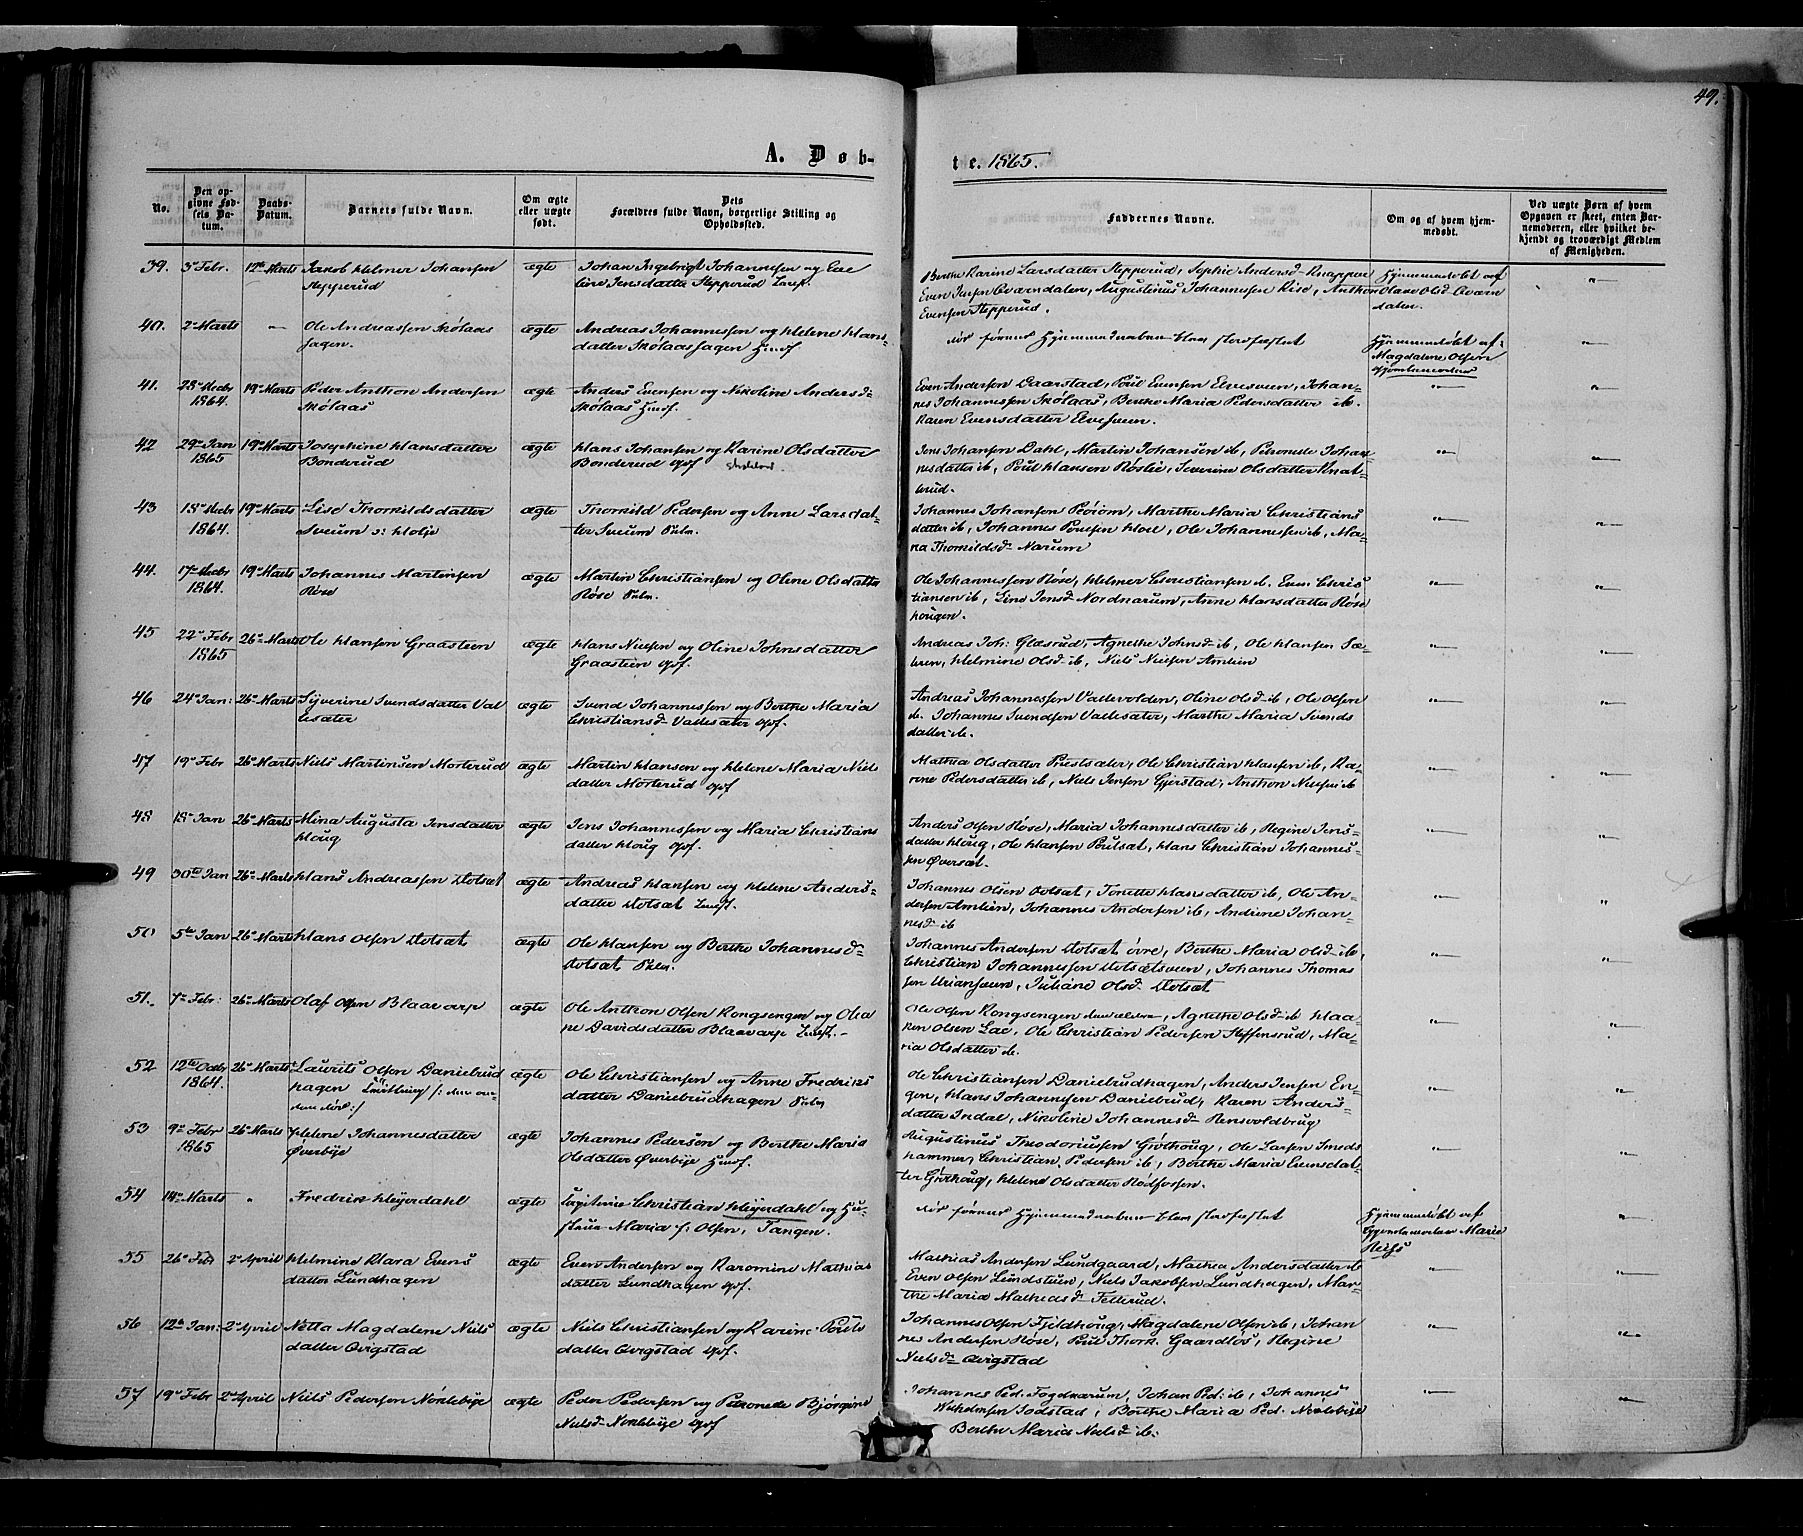 49.
A. Døb-
te. 1865.
No.
Den opgivne Fødsels Datum.
Daabs-Datum.
Barnets fulde Navn.
Om ægte eller uægte født.
Dets Forældres fulde Navn, borgerlige Stilling og Opholdssted.
Faddernes Navne.
Om og af hvem hjemmedøbt.
Ved uægte Børn af hvem Opgaven er skeet, enten Barnemoderen, eller hvilket bekjendt og troværdigt Medlem af Menigheden.
39. 3 Febr. 12te Marts Jakob Helmer Johansen ægte Johan Ingebrigt Johannesen og Eve
Stepperud line Jensdatter Stepperud
Berthe Karine Larsdatter Stepperud, Sophie Andersd- Hjemmedøbt af
Even Jensen Qværndalen, Augustinus Johannesen Rise, Anthon Olave Olsd- Qværn
Evensen Stepperud. dalen.
40. 2 Marts " Ole Andreassen Skölaas ægte Andreas Johannessen og Helene Hans
hagen. datter Skölaashagen Husf
Hjemmedaaben blev stadfæstet Hjemmedøbt af
Magdalene Olsen
41. 28 Decbr 19 Marts Peder Anthon Andersen ægte Anders Evensen og Nikoline Andersd-
1864. Skölaas Skölaas Husf.
Even Andersen Daarstad, Poul Evensen Elvesveen, Johan-
nes Johannessen Skölaas, Berthe Maria Pedersdatter ib.
Karen Evensdatter Elvesveen.
42 29 Jan 19 Marts Josephine Hansdatter ægte Hans Johansen og Karine Olsdatter
1865 Bonderud Bonderud
Jens Johansen Dahl, Martin Johansen ib, Petronelle Johan
nesdatter ib, Poul Hansen Röslie, Severine Olsdatter
rud.
43 18 Decbr 19 Marts Lise Thorkildsdatter ægte Thorkild Pedersen og Anne Larsdat-
1864. Sveum ter Sveum
Johannes Johansen, Marthe Maria Christians
datter ib, Johannes, Ole Johannessen ib, Ma-
Thorkildsd- Narum
44. 17 Decbr 19 Marts Johannes Martinsen ægte Martin Christiansen og Oline Olsdatter
1864. Röse Röse
Ole Johannessen Röse, Helmer Christiansen ib. Even Chris
tiansen ib, Line Jensd- Nordnarum, Anne Hansdatter Röse
hougen.
45 22 Febr 26 Marts Ole Hansen Graasteen ægte Hans Nielsen og Oline Johnsdatter
1865 Graasteen
Andreas Joh: Glæsrud, Agnethe Johnsd- ib, Ole Hansen
Helmine Olsd- ib, Niels Nielsen Amlien
46 24 Jan: 26 Marts Syverine Svendsdatter Val ægte Svend Johannessen og Berthe Maria
lesæter Christiansd- Vallesæter
Andreas Johannessen Vallevolden, Oline Olsd- ib, Ole Olsen
ib. Johannes Svendsen Vallesæter, Marthe Maria Svends
datter ib.
47 19 Febr 26 Marts Niels Martinsen Morterud ægte Martin Hansen og Helene Maria Niels
datter Morterud
Mathia Olsdatter, Ole Christian Hansen ib, Ka-
rine Pedersdatter ib, Niels Jensen Gjerstad, Anthon Nielsen ib
48 18 Jan 26 Marts Mina Augusta Jensdatter ægte Jens Johannessen og Maria Christians
Houg datter Houg
Anders Olsen Röse, Maria Johannesdatter ib, Regine Jens
datter Houg, Ole Hansen, Hans Christian Johannes-
sen Översæt.
49 30te Jan 26 Marts Hans Andreassen Dotsæt ægte Andreas Hansen og Helene Anders-
datter Dotsæt
Johannes Olsen Dotsæt, Tonette Hansdatter ib, Ole An-
dersen Amlien, Johannes Andersen ib, Andrine Johan-
nesd- ib
50 5te Jan 26 Marts Hans Olsen Dotsæt ægte Ole Hansen og Berthe Johannesd-
Dotsæt
Johannes Andersen Dotsæt övre, Berthe Maria Olsd- ib,
Christian Johannessen Dotsætsveen, Johannes Thomas
sen, Juliane Olsd- Dotsæt
51. 7 Febr: 26 Marts Olaf Olsen Blaavarp ægte Ole Anthon Olsen Kongsengen og Olea
Davidsdatter Blaavarp
Ole Olsen Kongsengen, Agnethe Olsd- ib, Haa-
ken Olsen, Ole Christian Pedersen Steffensrud, Ma-
ria Olsdatter ib.
52 12te Octbr 26 Marts Laurits Olsen Danielrud ægte Ole Christiansen og Anne Fredriks
1864. hagen datter Danielrudhagen
Ole Christiansen Danielrudhagen, Anders Jensen En-
gen, Hans Johannesen Danielrud, Karen Anders-
datter Indal, Nikoline Johannesd-
53 9 Febr 26 Marts Helene Johannesdatter ægte Johannes Pedersen og Berthe Maria
1865 Øverbye Olsdatter Øverbye Husf.
Augustinus Theodoriussen Gröthoug, Ole Larsen Smeds
hammer, Christian Pedersen ib, Berthe Maria Evensdat-
ter Gröthoug, Helene Olsdatter Rödfossen.
54 14 Marts " Fredrik Heyerdahl ægte Christian Heyerdahl og Hu-
struen Maria f: Olsen, Tangen.
Hjemmedaaben blev stadfæstet Hjemmedøbt af
Gjordemoder Marie
55 26 Feb 2 April Helmine Klara Evens ægte Even Andersen og Karomine Mathias
datter Lundhagen datter Lundhagen
Mathias Andersen Lundgaard, Mathea Andersdatter ib
Even Olsen Lundstuen, Niels Jakobsen Lundhagen, Mar-
the Maria Mathiasd- Fellerud.
56 12te Jan: 2 April Netta Magdalene Niels ægte Niels Christiansen og Karine Pouls
datter Qvigstad datter Qvigstad
Johannes Olsen Fjeldhoug, Magdalene Olsen ib, Johan
nes Andersen Röse, Poul Thork. Gaardlös, Regine
Nielsd- Qvigstad
57 19 Febr 2 April Niels Pedersen Nöklebye ægte Peder Pedersen og Petronele Bjørgine
Nielsd- Nöklebye
Johannes Ped. Fogdnarum, Johan Ped: ib, Johannes
Sodstad, Berthe Maria Ped. Nöklebye
Berthe Maria Nielsd- ib.